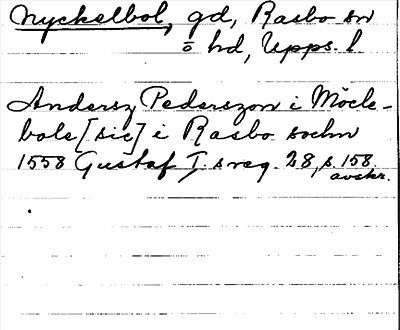 Nyckelbol, gd, Rasbo sn
o hd, Upps. l
Andersz Pederszon i Möcle-
bole [sic] i Rasbo sochn
1558 Gustaf I:s reg. 28, s. 158.
avskr.